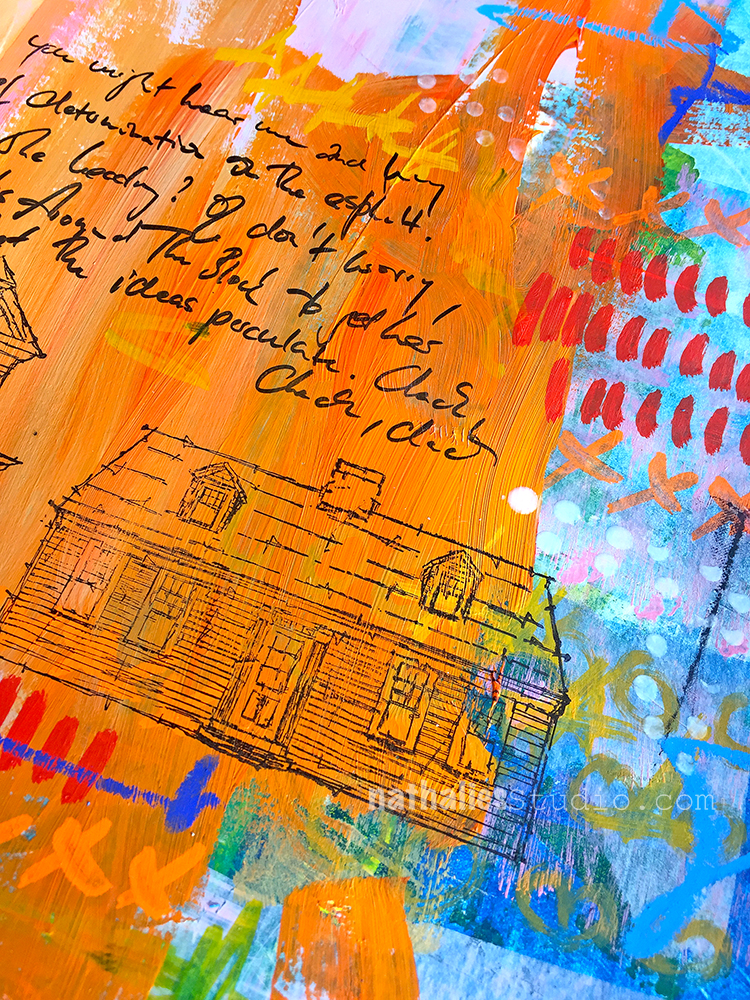 you might hear me and my
of determination on the asphalt.
The heading? Oh don't worry,
Around The Block to let
the ideas perculate. Clack
Clack, clack
nathaliesstudio.com